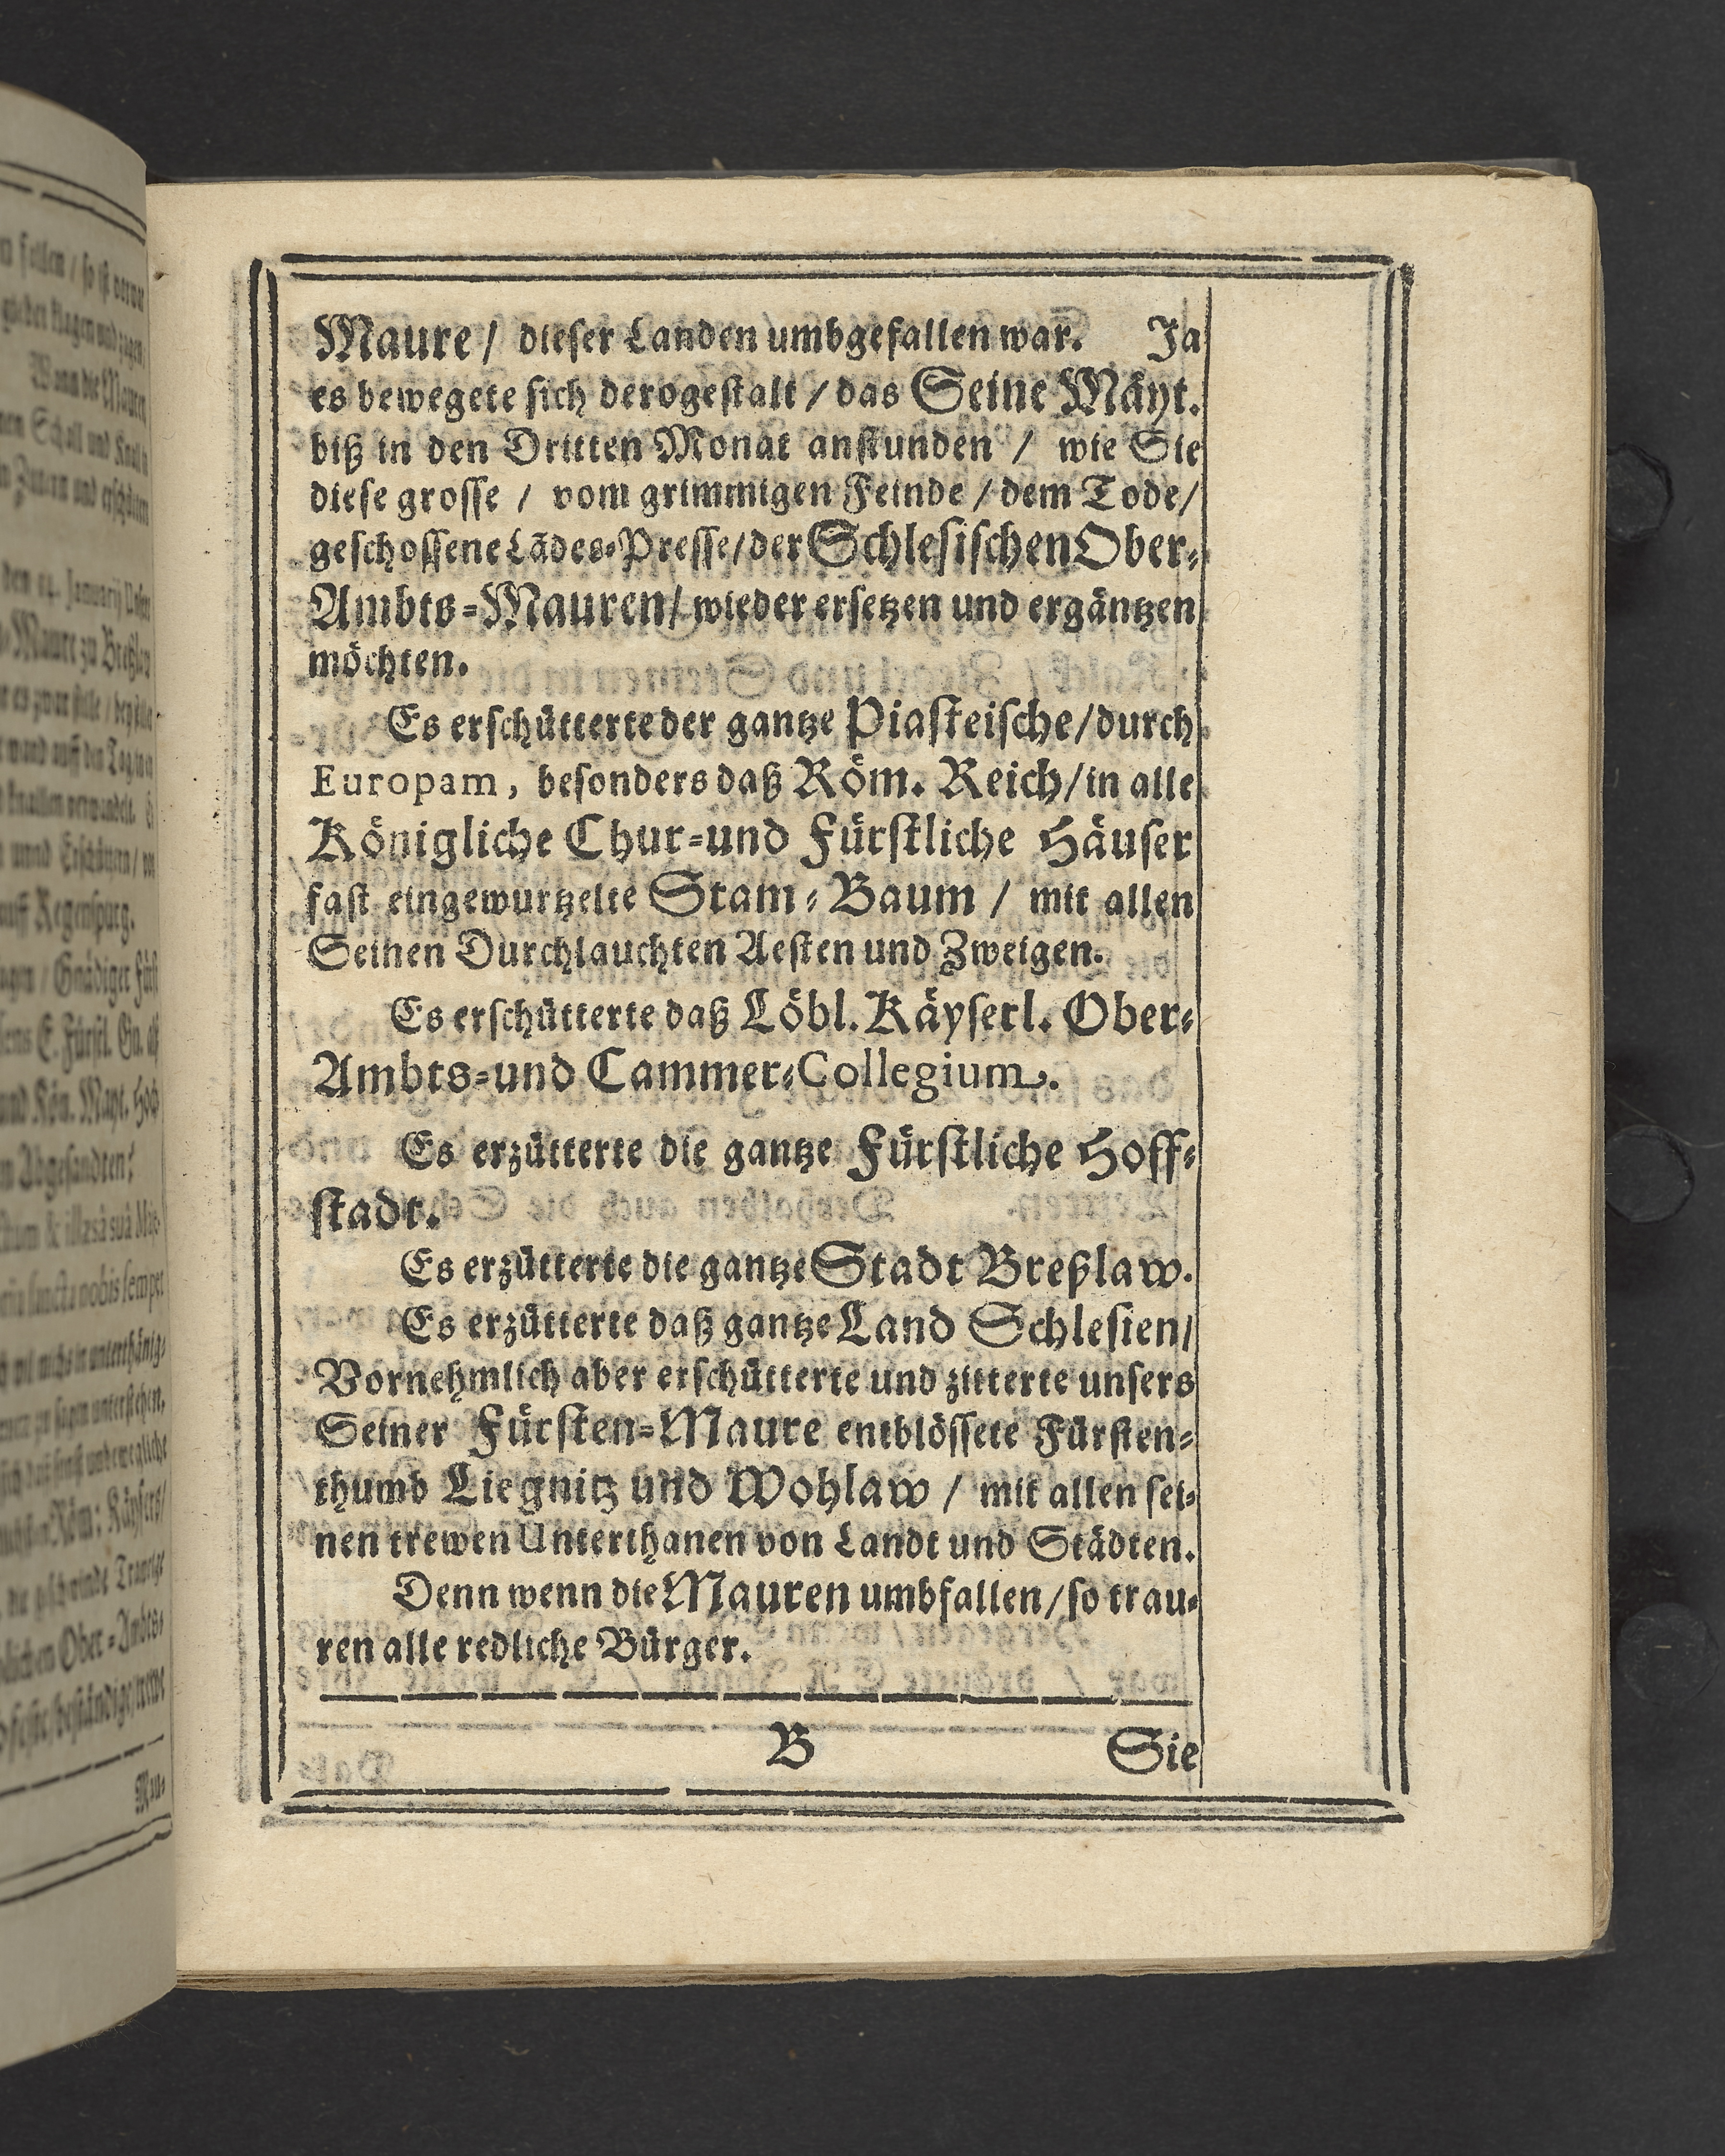 Maure / dieſer Landen umbgefallen war. Ja
es bewegete ſich derogeſtalt / das Seine Mäyt.
biß in den Dritten Monat anſtunden / wie Sie
dieſe groſſe / vom grimmigen Feinde / dem Tode /
geſchoſſene Lādes-Preſſe / der Schleſiſchen Ober-
Ambts-Mauren / wieder erſetzen und ergäntzen
möchten.
Es erſchütterte der gantze Piaſteiſche / durch
Europam, beſonders daß Röm. Reich / in alle
Königliche Chur-und Fürſtliche Häuſer
faſt eingewurtzelte Stam-Baum / mit allen
Seinen Durchlauchten Aeſten und Zweigen.
Es erſchütterte daß Löbl. Käyſerl. Ober-
Ambts-und Cammer-Collegium.
Es erzütterte die gantze Fürſtliche Hoff-
ſtadt.
Es erzütterte die gantze Stadt Breßlaw.
Es erzütterte daß gantze Land Schleſien /
Vornehmlich aber erſchütterte und zitterte unſers
Seiner Fürſten-Maure entblöſſete Fürſten-
thumb Liegnitz und Wohlaw / mit allen ſei-
nen trewen Unterthanen von Landt und Städten.
Denn wenn die Mauren umbfallen / ſo trau-
ren alle redliche Bürger.
B Sie